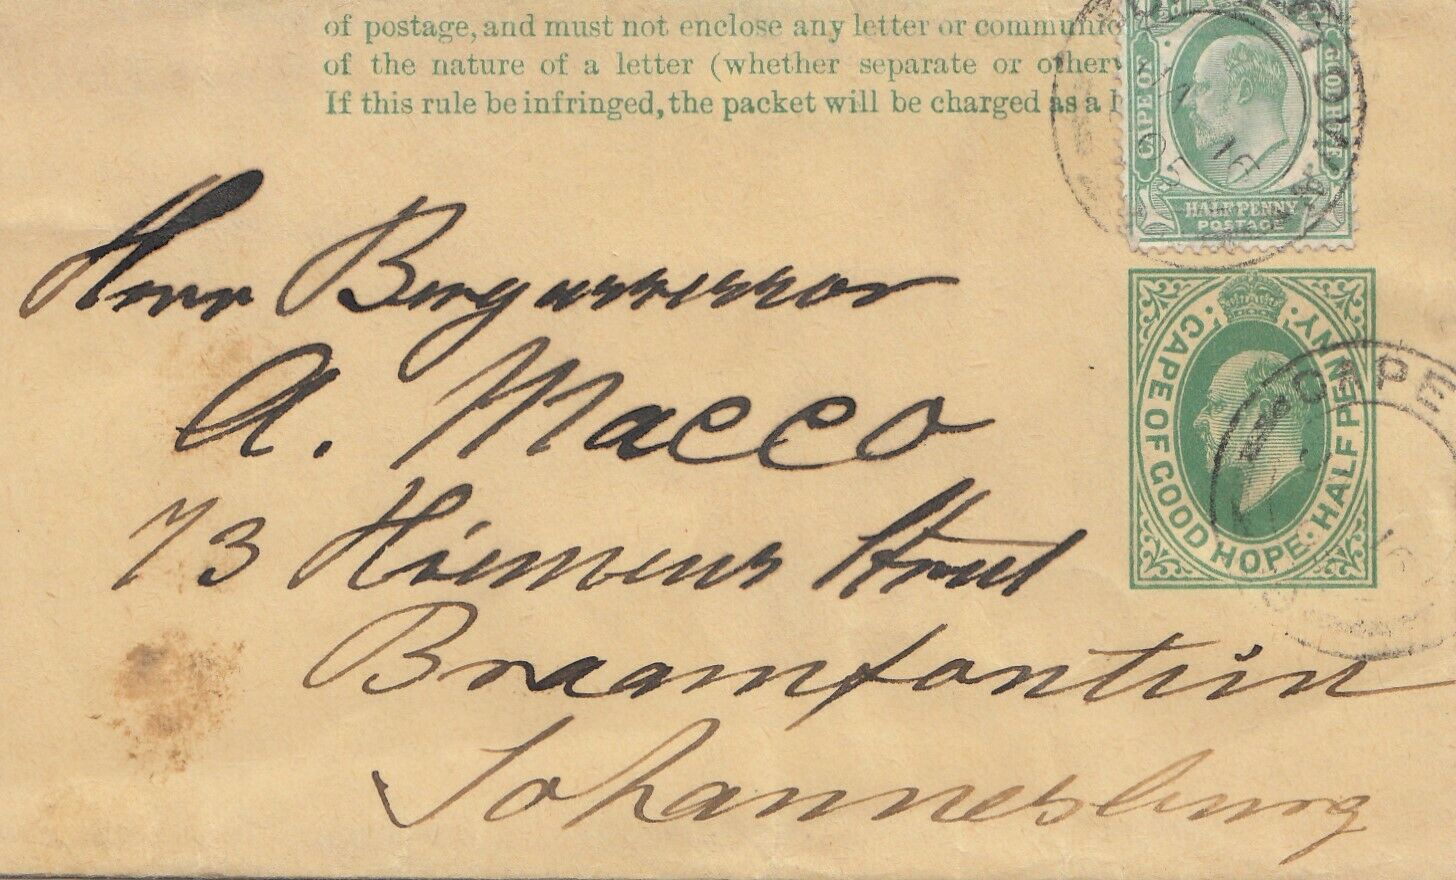 of postage, and must not enclose any letter or communic
of the nature of a letter (whether separate or otherw
If this rule be infringed, the packet will be charged as a l
CAPE OF GOOD HOPE
HALF PENNY
POSTAGE
Herr Bergassessor
A. Macco
73 Siemens Street
Braamfontein
Johannesburg
CAPE OF GOOD HOPE · HALF PENNY
CAPE
16